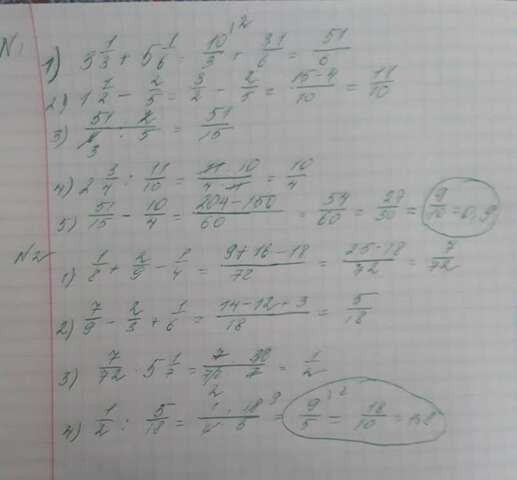 N1
1) 3 1/3 + 5 1/6 = 10/3 ^2 + 31/6 = 51/6
2) 1 1/2 - 2/5 = 3/2 - 2/5 = 15-4/10 = 11/10
3) 51 · 2/6 · 5 = 51/15
3
4) 2 3/4 : 11/10 = 11 · 10/4 · 11 = 10/4
5) 51/15 - 10/4 = 204-150/60 = 54/60 = 27/30 = 9/10 = 0,9
N2
1) 1/8 + 2/9 - 1/4 = 9+16-18/72 = 25-18/72 = 7/72
2) 7/9 - 2/3 + 1/6 = 14-12+3/18 = 5/18
3) 7/72 · 5 1/7 = 7 · 36/72 · 7 = 1/2
2
4) 1/2 : 5/18 = 1 · 18 ^9/2 · 5 = 9/5 ^2 = 18/10 = 1,8